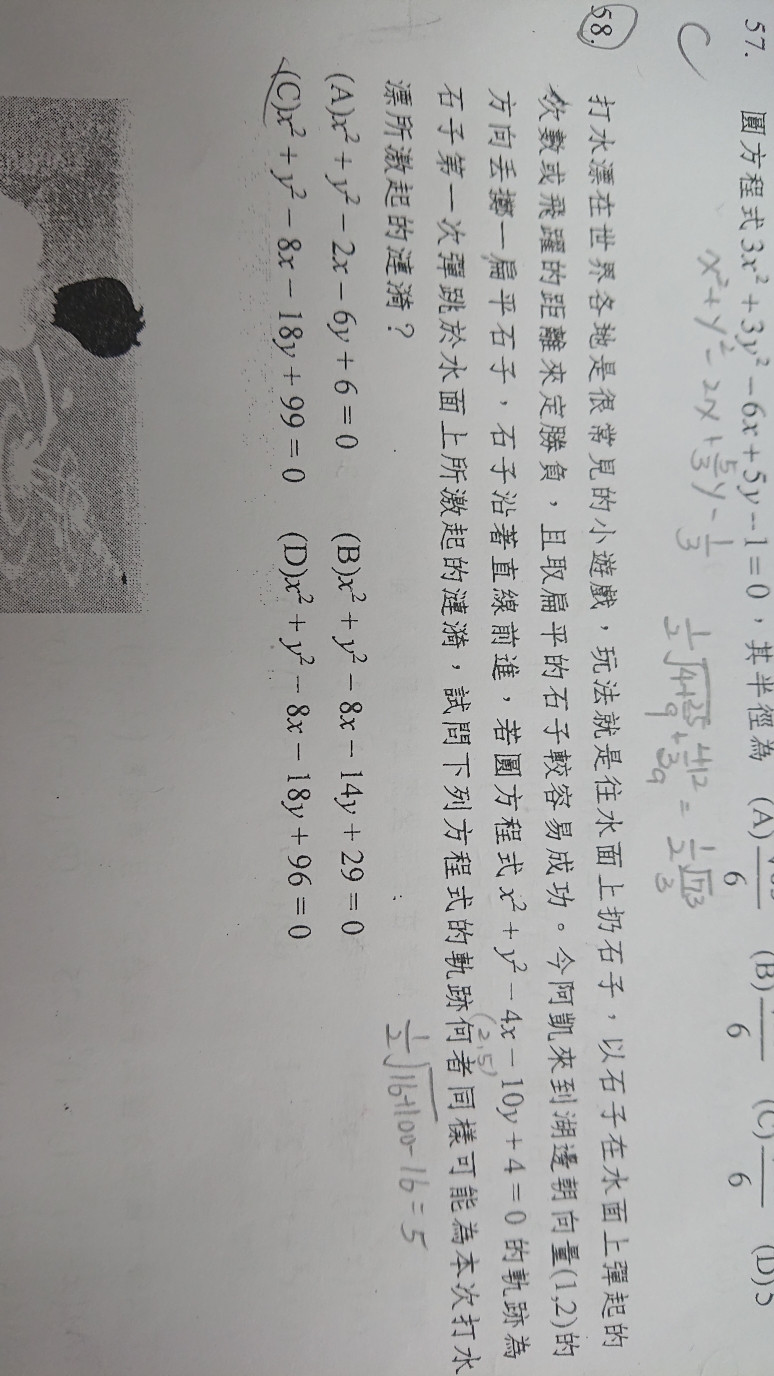 57. 圓方程式3x² + 3y² − 6x + 5y − 1 = 0，其半徑為 (A) 6 (B) 6 (C) 6 (D)5
C
x² + y² − 2x + 5/3 y − 1/3
58. 打水漂在世界各地是很常見的小遊戲，玩法就是往水面上扔石子，以石子在水面上彈起的
次數或飛躍的距離來定勝負，且取扁平的石子較容易成功。今阿凱來到湖邊朝向量(1,2)的
方向丟擲一扁平石子，石子沿著直線前進，若圓方程式 x² + y² − 4x − 10y + 4 = 0 的軌跡為
(2,5)
石子第一次彈跳於水面上所激起的漣漪，試問下列方程式的軌跡何者同樣可能為本次打水
漂所激起的漣漪？
1/2 √16+100−16 = 5
(A)x² + y² − 2x − 6y + 6 = 0 (B)x² + y² − 8x − 14y + 29 = 0
(C)x² + y² − 8x − 18y + 99 = 0 (D)x² + y² − 8x − 18y + 96 = 0